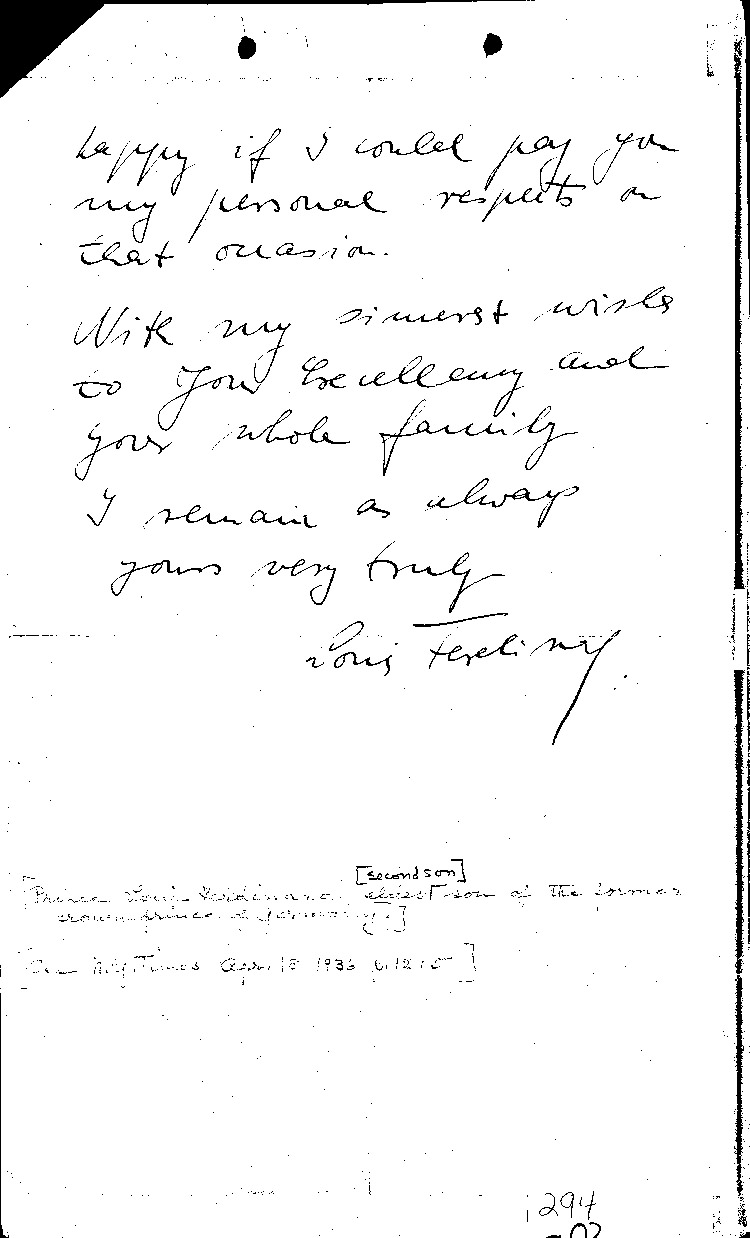 happy if I could pay you
my personal respects on
that occasion.
With my sincerest wishes
to Your Excellency and
your whole family
I remain as always
yours very truly
Louis Ferdinand
[second son]
[Prince Louis Ferdinand, eldest son of the former
crown prince of Germany.]
NY Times April 8 1936 12:5 ]
294